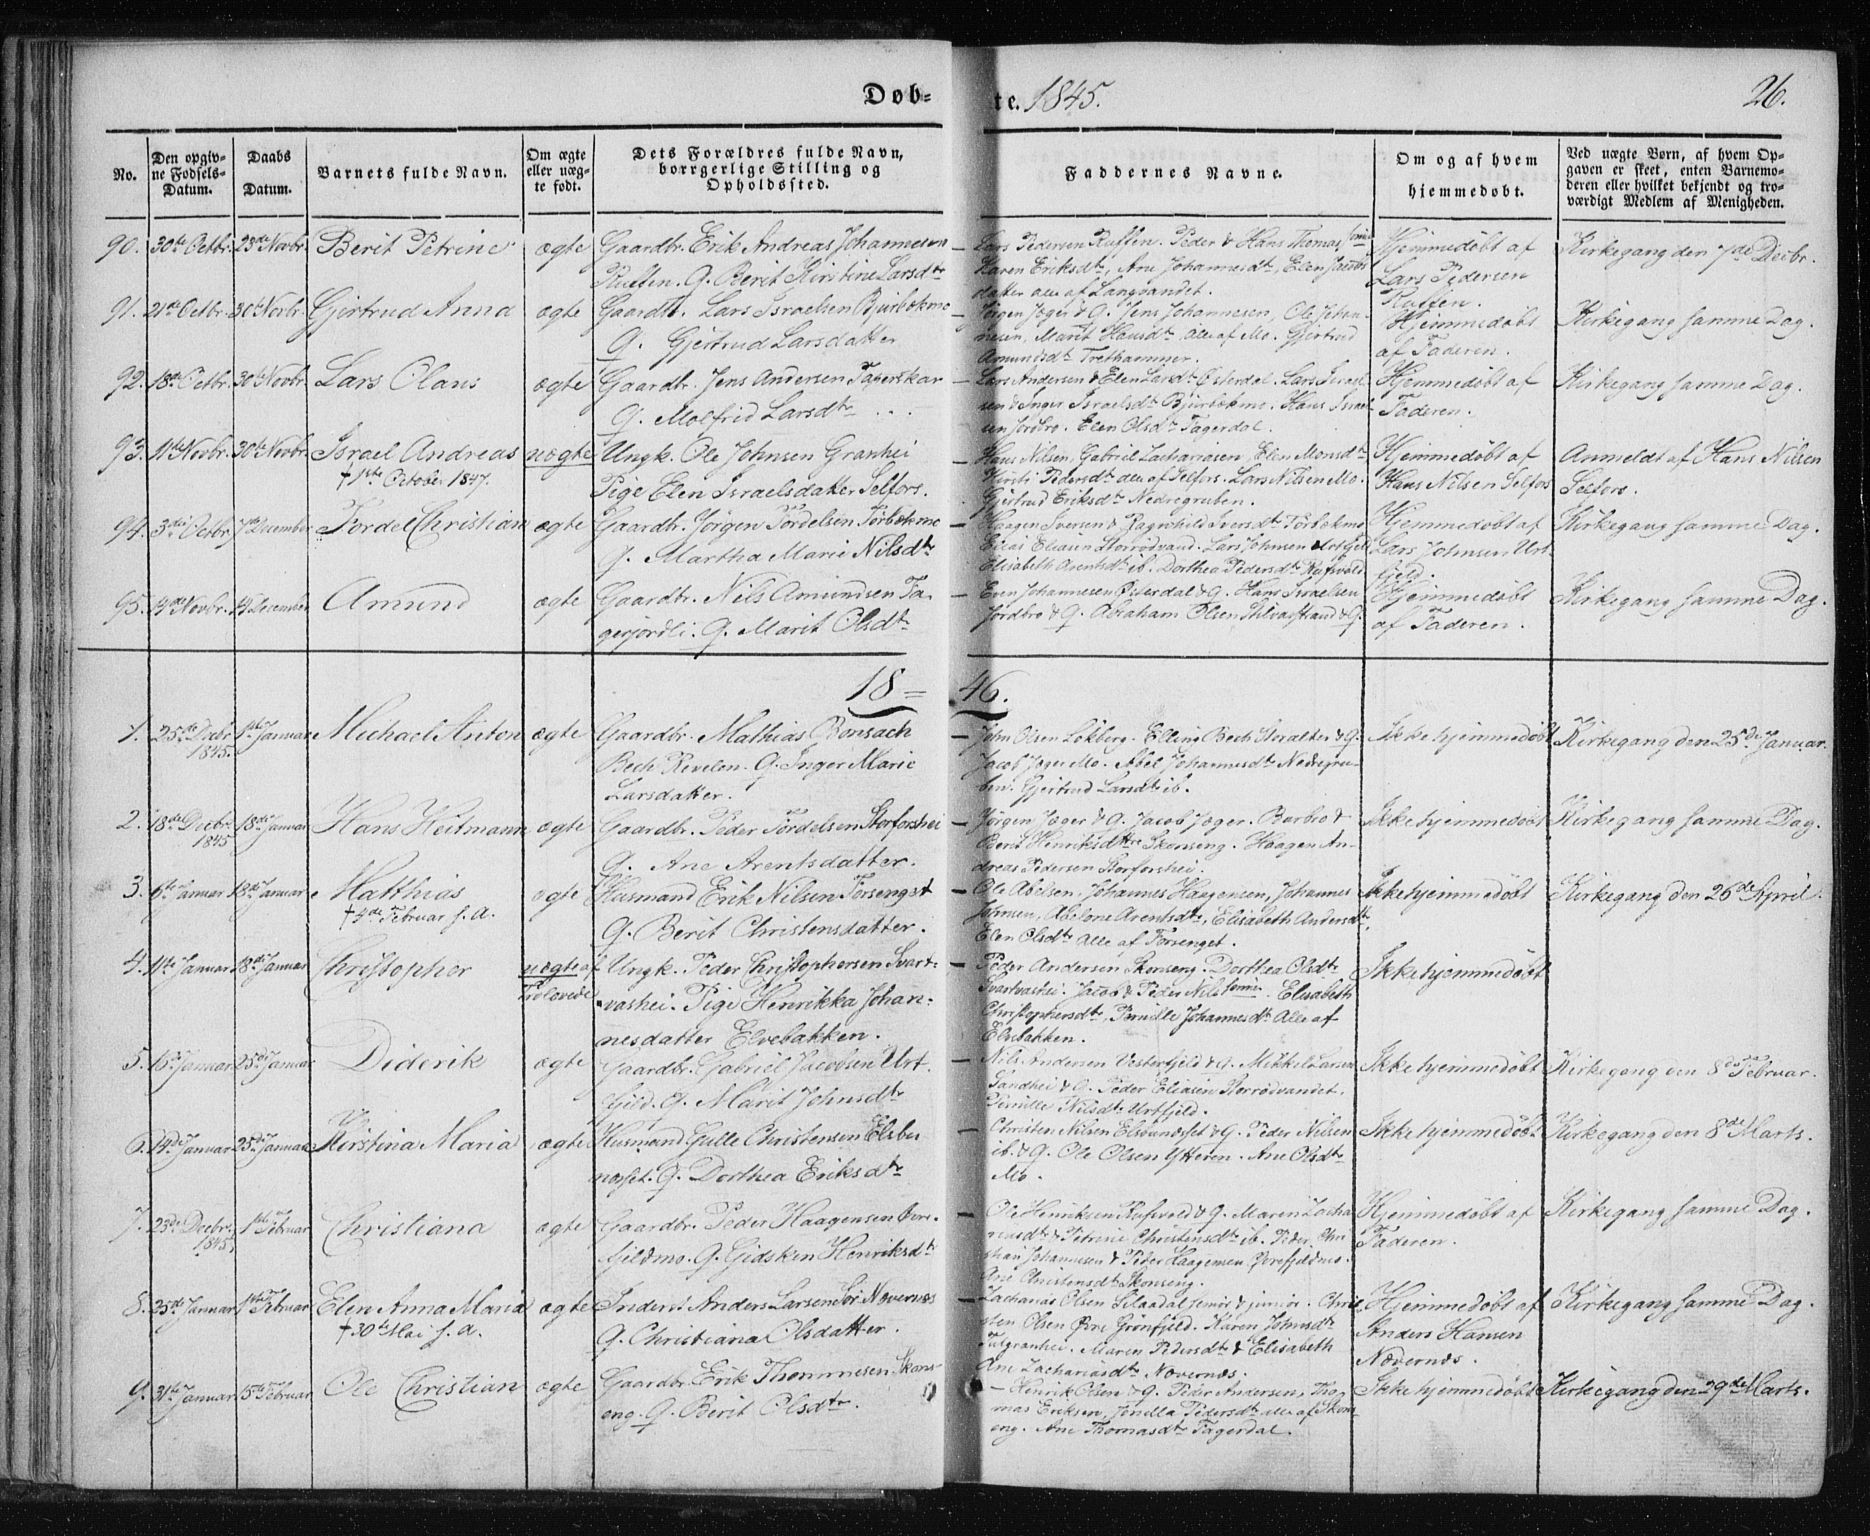 Døb-
te. 1845.
26.
No.
Den opgiv-
ne Fødsels-
Datum.
Daabs
Datum.
Barnets fulde Navn.
Om ægte
eller uæg-
te født.
Dets Forældres fulde Navn,
borrgerlige Stilling og
Opholdssted.
Faddernes Navne.
Om og af hvem
hiemmedøbt.
Ved uægte Børn, af hvem Op-
gaven er skeet, enten Barnemo-
deren eller hvilket bekjendt og tro-
værdigt Medlem af Menigheden.
90. 30te Octbr. 23de Novbr. Berit Petrine ægte Gaardbr. Erik Andreas Johannesen
Ruffen. G. Berit Kirstine Larsdtr
Lars Pedersen Ruffen. Peder & Hans Thomas sønner
Karen Eriksdtr, Ane Johannesdtr, Elen Jacobs
datter alle af Langvandet.
Hjemmedøbt af
Lars Pedersen
Ruffen.
Kirkegang den 7de Decbr.
91. 21de Octbr. 30te Novbr. Gjertrud Anna ægte Gaardbr. Lars Israelsen Bjürbækmo
G. Gjertrud Larsdatter
Jørgen Jæger & G. Jens Johannesen, Ole Johan-
nesen, Maret Hansdtr. alle af Mo. Gjertrud
Amundsdtr Trethammer.
Hjemmedøbt
af Faderen.
Kirkegang samme Dag.
92. 18de Octbr. 30te Novbr. Lars Olaus ægte Gaardbr. Jens Andersen Fagerskar
G. Molfrid Larsdtr
Lars Andersen & Elen Larsdtr Østerdal. Lars Israel-
sen & Inger Israelsdtr Bjürbækmo. Hans Israel-
sen Jordbro. Elen Olsdtr Fagerdal.
Hjemmedøbt af
Faderen.
Kirkegang samme Dag.
93. 11te Novbr. 30te Novbr. Israel Andreas uægte Ungk. Ole Johnsen Granhei
† 1ste October 1847.
Pige Elen Israelsdatter Selfors.
Hans Nilsen, Gabriel Zachariasen, Elen Monsdtr
Kirsti Pedersdtr alle af Selfors. Lars Nilsen Mo.
Gjertrud Eriksdtr Nedregruben.
Hjemmedøbt af
Hans Nilsen Selfors
Anmeldt af Hans Nilsen
Selfors.
94. 3die Octbr. 7de December Tordel Christian ægte Gaardbr. Jørgen Tordelsen Tørbekmo
G. Martha Marie Nilsdtr
Haagen Iversen & Ragnhild Iversdtr Tørbekmo
Elias Eliasen Storrødvand. Lars Johnsen Urtfjeld
Elisabeth Arentsdtr ib. Dorthea Pedersdtr Rufsvold
Hjemmedøbt af
Lars Johnsen Urt
fjeld.
Kirkegang samme Dag.
95. 14de Novbr. 14 December Amund ægte Gaardbr. Nils Amundsen Fa-
gerjordli. G. Marit Olsdtr
Even Johannesen Østerdal & G. Hans Israelsen
Jordbro & G. Abraham Olsen Ytrvasstrand & G.
Hjemmedøbt
af Faderen.
Kirkegang samme Dag.
18=46.
1. 25de Decbr. 1ste Januar Michael Anton ægte Gaardbr. Mathias Bonsach
1845.
Bech Revelen. G. Inger Marie
Larsdatter.
John Olsen Løkberg. Elling Bech Høralter & G.
Jacob Jæger Mo. Abel Johannesdtr Nedregru-
ben. Gjertrud Larsdtr ib.
Ikke hjemmedøbt
Kirkegang den 25de Januar.
2. 18de Decbr. 18de Januar Hans Heitmann ægte Gaardbr. Peder Tordelsen Storforshei
1845
G. Ane Arentsdatter.
Jørgen Jæger & G. Jacob Jæger. Barbro &
Berit Henriksdttre Skonseng. Haagen An-
dreas Pedersen Storforshei.
Ikke hjemmedøbt
Kirkegang samme Dag.
3. 6te Januar 18de Januar Matthias ægte Husmand Erik Nilsen Forsenget
† 4de Februar s. a.
G. Berit Christensdatter.
Ole Abelsen. Johannes Haagensen, Johannes
Johnsen, Abelone Arentsdtr, Elisabeth Andersdtr,
Elen Olsdtr Alle af Forsenget.
Ikke hjemmedøbt
Kirkegang den 26de April.
4. 11te Januar 18de Januar Christopher uægte af
Trolovede
Ungk. Peder Christophersen Svart-
vashei. Pige Henrikka Johan-
nesdatter Elvebakken.
Peder Andersen Skonseng. Dorthea Olsdtr
Svartvashei. Jacob & Peder Nils sønner. Elisabeth
Christophersdtr, Pernille Johannesdtr Alle af
Elvebakken.
Ikke hjemmedøbt
5. 16de Januar 25de Januar Diderik ægte Gaardbr. Gabriel Jacobsen Urt-
fjeld. G. Marit Johnsdtr
Nils Andersen Vesterfjeld & G. Mikkel Larsen
Sandhei & G. Peder Eliasen Storrødvandet.
Pernille Nilsdtr Urtfjeld.
Ikke hjemmedøbt
Kirkegang den 8de Februar.
6. 14de Januar 25de Januar Kirstina Maria ægte Husmand Gulle Christensen Elsbu
næsset. G. Dorthea Eriksdtr
Christen Nilsen Elsbunæsset & G. Peder Nilsen
ib. & G. Ole Olsen Ytteren. Ane Olsdtr
Mo.
Ikke hjemmedøbt
Kirkegang den 8de Marts.
7. 23de Decbr. 1ste Februar Christiana ægte Gaardbr. Peder Haagensen Øvre-
1845.
fjeldmo. G. Gidsken Henriksdtr
Ole Henriksen Rufsvold & G. Maren Zacha
riasdtr & Petrine Christensdtr ib. Peder, Chri
stian Johannesen & Peder Haagensen Øvrefjeldmo.
Ane Christensdtr Skonseng.
Hjemmedøbt af
Faderen.
Kirkegang samme Dag.
8. 25de Januar 1ste Februar Elen Anna Maria ægte Inders. Anders Larsen Sør Nævernæs
† 30te Mai s. a.
G. Christiana Olsdatter.
Zacharias Olsen Stlaadal senior & junior. Chri
sten Olsen Øvre Grønfjeld. Karen Johnsdtr
Tulgranhei. Maren Pedersdtr & Elisabeth
Ane Zachariasdtr Nævernæs.
Hjemmedøbt af
Anders Hansen
Nævernæs.
Kirkegang samme Dag.
9. 31te Januar 15de Februar Ole Christian ægte Gaardbr. Erik Thommesen Skons-
eng. G. Berit Olsdtr.
Henrik Olsen & G. Peder Andersen, Tho
mas Eriksen, Jonilla Pedersdtr alle af Skons
eng. Ane Thomasdtr Fagerdal.
Ikke hjemmedøbt
Kirkegang den 29de Marts.